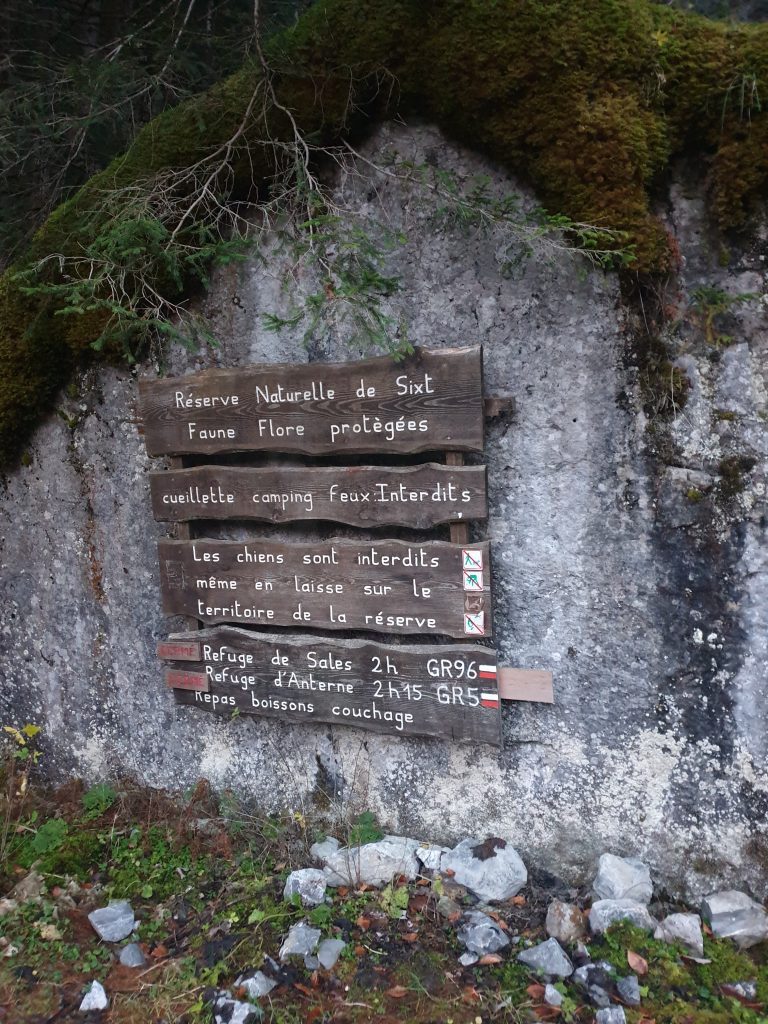 Réserve Naturelle de Sixt
Faune Flore protègées
cueillette camping Feux:Interdits
Les chiens sont interdits
même en laisse sur le
territoire de la réserve
FERMÉ Refuge de Sales 2h GR96
FERMÉ Refuge d'Anterne 2h15 GR5
Repas boissons couchage